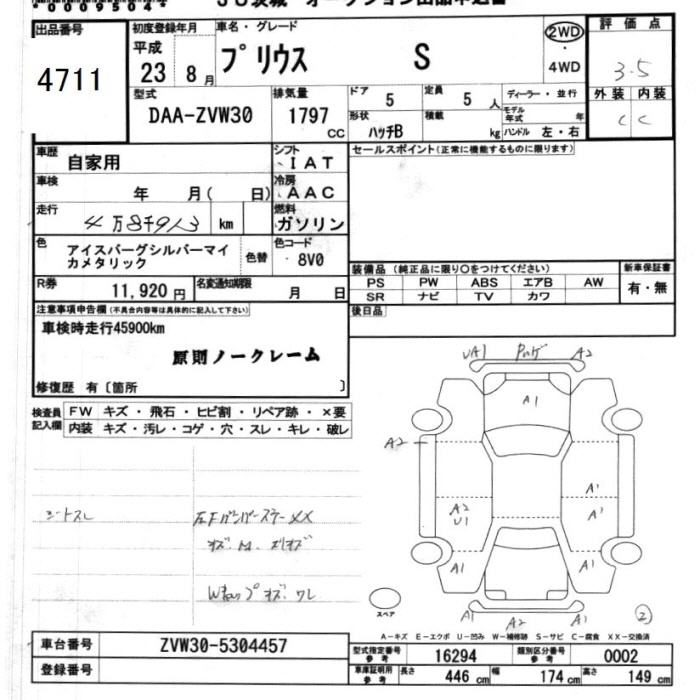 *0009504*
JU茨城 オークション出品申込書
出品番号
4711
初度登録年月
平成
23 8月
車名・グレード
プリウス S
2WD
・
4WD
評価点
3.5
型式
DAA-ZVW30
排気量
1797
CC
ドア 5
定員 5 人
ディーラー・並行
形状 ハッチB
積載 kg
モデル年式 年
ハンドル 左・右
外装 内装
C C
車歴
自家用
シフト
IAT
セールスポイント(正常に機能するものに限ります)
車検
年 月( 日)
冷房
AAC
走行
km
燃料
ガソリン
色
アイスバーグシルバーマイ
カメタリック
色替
色コード
8V0
装備品(純正品に限り○をつけてください)
新車保証書
PS PW ABS エアB AW
SR ナビ TV カワ
有・無
R券
11,920 円
名変通知期限
月 日
後日品
注意事項申告欄(不具合内容等は具体的に記入して下さい)
車検時走行45900km
原則ノークレーム
修復歴 有〔箇所 〕
検査員
記入欄
FW キズ・飛石・ヒビ割・リペア跡・×要
内装 キズ・汚レ・コゲ・穴・スレ・キレ・破レ
UA1 A2
A1
A2
A2
U1
A1
A1
A1
A1
A1 A2 A2
シートスレ
スペア
2
A-キズ E-エクボ U-凹み W-補修跡 S-サビ C-腐食 XX-交換済
車台番号
ZVW30-5304457
型式指定番号
参考
16294
類別区分番号
参考
0002
登録番号
車庫証明用
参考
長さ 446 cm
幅 174 cm
高さ 149 cm